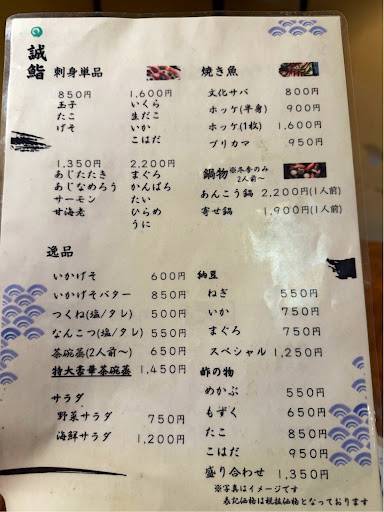 誠鮨
刺身単品
850円
玉子
たこ
げそ
1,600円
いくら
生だこ
いか
こはだ
1,350円
あじたたき
あじなめろう
サーモン
甘海老
2,200円
まぐろ
かんぱち
たい
ひらめ
うに
逸品
いかげそ 600円
いかげそバター 850円
つくね(塩/タレ) 550円
なんこつ(塩/タレ) 500円
茶碗蒸(2人前〜) 650円
特大豪華茶碗蒸 1,450円
サラダ
野菜サラダ 750円
海鮮サラダ 1,200円
焼き魚
文化サバ 800円
ホッケ(半身) 900円
ホッケ(1枚) 1,600円
ブリカマ 950円
鍋物 ※冬季のみ
2人前〜
あんこう鍋 2,200円(1人前)
寄せ鍋 1,900円(1人前)
納豆
ねぎ 550円
いか 750円
まぐろ 750円
スペシャル 1,250円
酢の物
めかぶ 550円
もずく 650円
たこ 850円
こはだ 950円
盛り合わせ 1,350円
※写真はイメージです
表記価格は税抜価格となっております